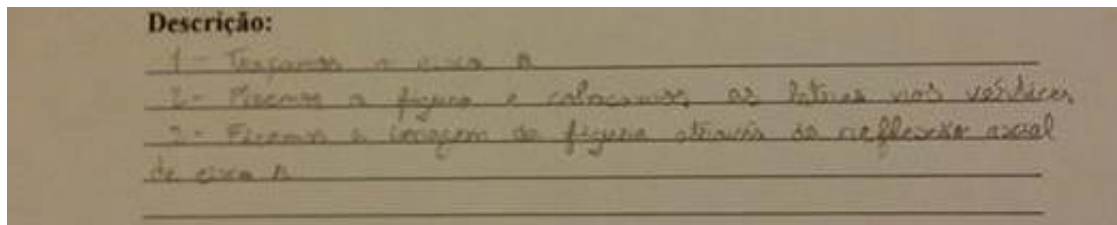 Descrição:
1 - Traçamos o eixo r
2 - Fizemos a figura e colocamos as letras nos vértices
3 - Fizemos a imagem da figura através da reflexão axial
de eixo r